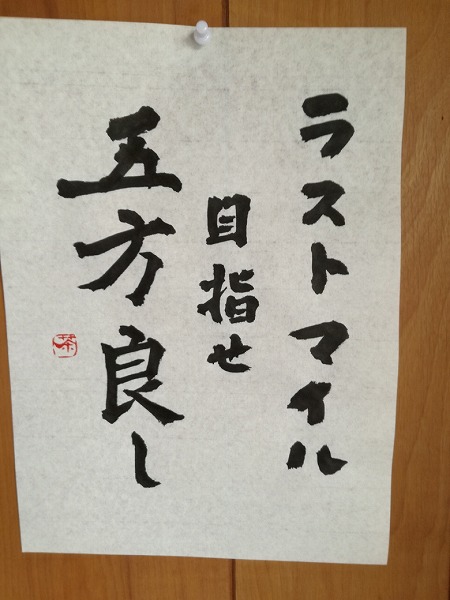 ラストマイル
目指せ
五方良し